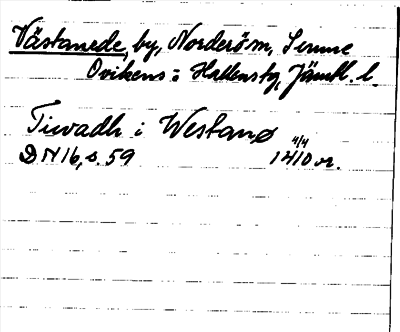 Västanede, by, Norderöm, Sunne
Ovikens : Hallens tg, Jämtl. l.
Tiwadh i Westanø
DN 16, s. 59 4/4 1410 or.